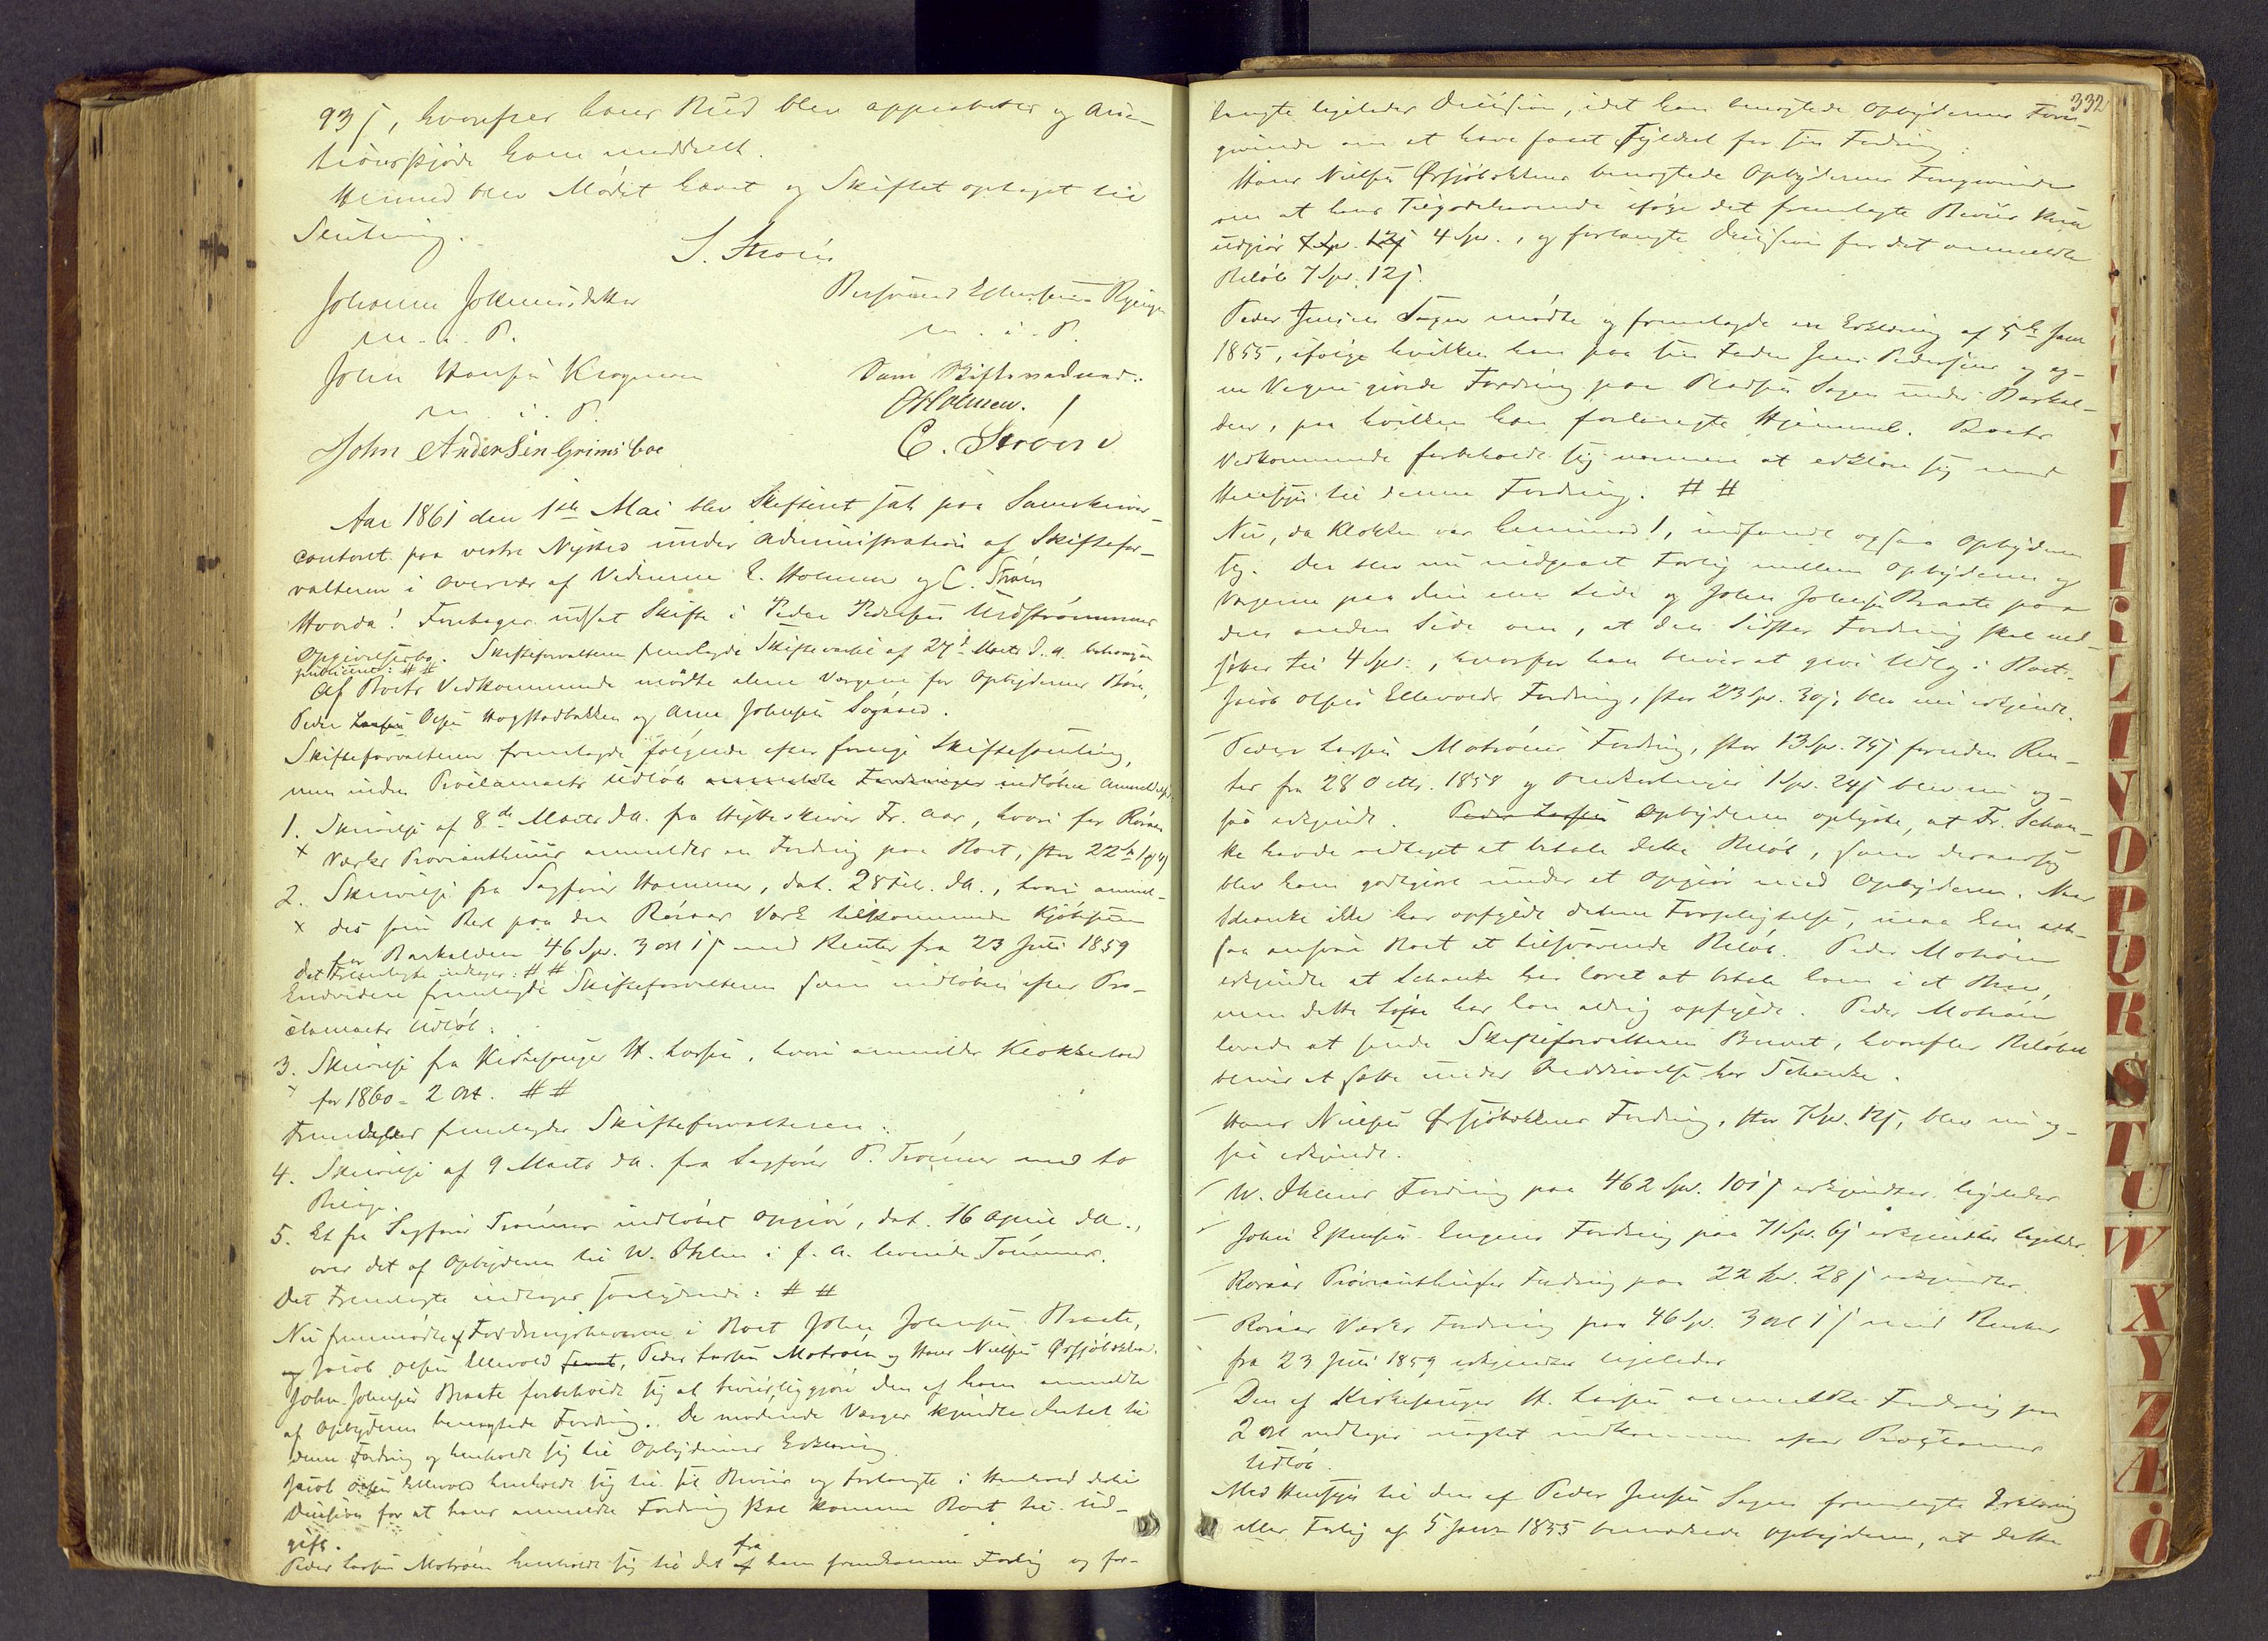 93 s, hvorefter hans Bud blev approberet og Auc-
tionsskjøde ham meddelt.
Hermed blev Mødet hævet og Skiftet optaget til
Slutning.
S. Strøm
Johanne Johnsdatter
m. i. P.
John Hansen Krogmoen
m. i. P.
John Andersen Grimsboe
m. i. P.
Som Skiftevidner:
EHolmen.
C. Strøm
Aar 1861 den 1ste Mai blev Skifteret sat paa Sorenskriver-
contoret paa vestre Nysted under Administration af Skiftefor-
valteren i Overvær af Vidnerne E. Holmen og C. Strøm
Hvorda! Foretages udsat Skifte i Peder Pedersen Urdstrømmens
Opgivelsesbo. Skifteforvalteren fremlagde Skiftevarsel af 27de Marts d. A. behørigen
publiceret: # #
Af Boets Vedkommende mødte alene Værgerne for Opbyderens Børn,
Peder Olsen Hogstadbakken og Arne Johnsen Søgaard.
Skifteforvalteren fremlagde følgende efter forrige Skiftesamling,
men inden Proclamaets Udløb anmeldte Fordringer indløbne Anmeldelser
1. Skrivelse af 8de Marts d.A. fra Hytteskriver Fr. Aas, hvori for Røraas
x Værks Provianthuus anmeldes en Fordring paa Boet, stor 22
2. Skrivelse fra Sagfører Hammer, dat. 28 Feb. d.A., hvori anmel-
x des som Rest paa den Røraas Værk tilkommende Kjøbesum
for Barkalden 46 Spd. 3 ort 1 s med Renter fra 23 Juli 1859
Det Fremlagte indtages: # #
Endvidere fremlagde Skifteforvalteren som indløbne efter Pro-
clamaets Udløb:
3. Skrivelse fra Kirkesanger H. Larsen, hvori anmeldes Klokkertold
x for 1860 = 2 Ort. # #
Fremdeles fremlagdes Skifteforvalteren:
4. Skrivelse af 9 Marts d.A. fra Sagfører P. Trønnes med to
Bilage.
5. Et fra Sagfører Trønnes indløbet Opgjør, dat. 16 April d.A.,
over det af Opbyderen til W. Ihlen i f. A. leverede Tømmer.
Det Fremlagte indtages saalydende: # #
Nu fremmødte af Fordringshaverne i Boet John Johnsen Braate,
og Jacob Olsen Ellevold, Peder Larsen Motrøen og Hans Nielsen Ørsjøbakken.
John Johnsen Braate forbeholdt sig at beviisliggjøre den af ham anmeldte
af Opbyderen benegtede Fordring. De mødende Værger kjendte Intet til
denne Fordring og henholdt sig til Opbyderens Erklæring.
Jacob Olsen Ellevold henholdt sig til sit Beviis og forlangte i Henhold dertil
Decision for at hans anmeldte Fordring skal komme Boet til Ud-
gift.
Peder Larsen Motrøen henholdt sig til det fra ham fremkomne Forlig og for-
332
langte ligeledes Decision, idet han benegtede Opbyderens Fore-
givende om at have faaet Fyldest for sin Fordring.
Hans Nielsen Ørsjøbakken benegtede Opbyderens Foregivende
om at hans Tilgodehavende ifølge det fremlagte Beviis kun
udgjør 7 Spd. 12 s 4 Spd., og forlangte Decision for det anmeldte
Beløb 7 Spd. 12 s.
Peder Jensen Sagen mødte og fremlagde en Erklæring af 5te Janr
1855, ifølge hvilken han paa sin Fader Jens Pedersens og eg-
ne Vegne gjorde Fordring paa Pladsen Sagen under Barkal-
den, paa hvilken han forlangte Hjemmel. Boets
Vedkommende forbeholdt sig nærmere at erklære sig med
Hensyn til denne Fordring. # #
Nu, da Klokken var henimod 1, indfandt ogsaa Opbyderen
sig. Der blev nu indgaaet Forlig mellem Opbyderen og
Værgerne paa den ene Side og John Johnsen Braate paa
den anden Side om, at den Sidstes Fordring skal ned-
sættes til 4 Spd., hvorfor han bliver at give Udlæg i Boet.
Jacob Olsen Ellevolds Fordring, stor 23 Spd. 30 s, blev nu erkjendt.
Peder Larsen Motrøens Fordring, stor 13 Spd. 74 s foruden Ren-
ter fra 28 Octb. 1858 og Omkostninger 1 Spd. 24 s blev nu og-
saa erkjendt. Peder Larsen Opbyderen oplyste, at Fr. Schan-
ke havde vedtaget at betale dette Beløb, som derved
blev ham godtgjort under et Opgjør med Opbyderen. Naar
Schanke ikke har opfyldt denne Forpligtelse, maa han alt-
saa ansvare Boet et tilsvarende Beløb. Peder Motrøen
erkjendte at Schanke har lovet at betale ham i et Brev,
men dette Løfte har han aldrig opfyldt. Peder Motrøen
lovede at sende Skifteforvalteren Brevet, hvorefter Beløbet
bliver at sætte under Inddrivelse hos Schanke.
Hans Nielsen Ørsjøbakkens Fordring, stor 7 Spd. 12 s, blev nu og-
saa erkjendt.
W. Ihlens Fordring paa 462 Spd. 101 s erkjendtes ligeledes
John Estensen Engens Fordring paa 71 Spd. 6 s erkjendtes ligeledes.
Røraas Provianthuses Fordring paa 22 Spd. 28 s erkjendtes.
Røraas Værks Fordring paa 46 Spd. 3 ort 1 s med Renter
fra 23 Juli 1859 erkjendtes ligeledes
Den af Kirkesanger H. Larsen anmeldte Fordring paa
2 ort vedtages uagtet indkommen efter Proclamas
Udløb.
Med Hensyn til den af Peder Jensen Sagen fremlagte Erklæring
eller Forlig af 5 Janr 1855 bemærkede Opbyderen, at dette
I
K
L
I
N
O
P
Q
R
S
T
U
W
X
Y
Z
Æ
Ø